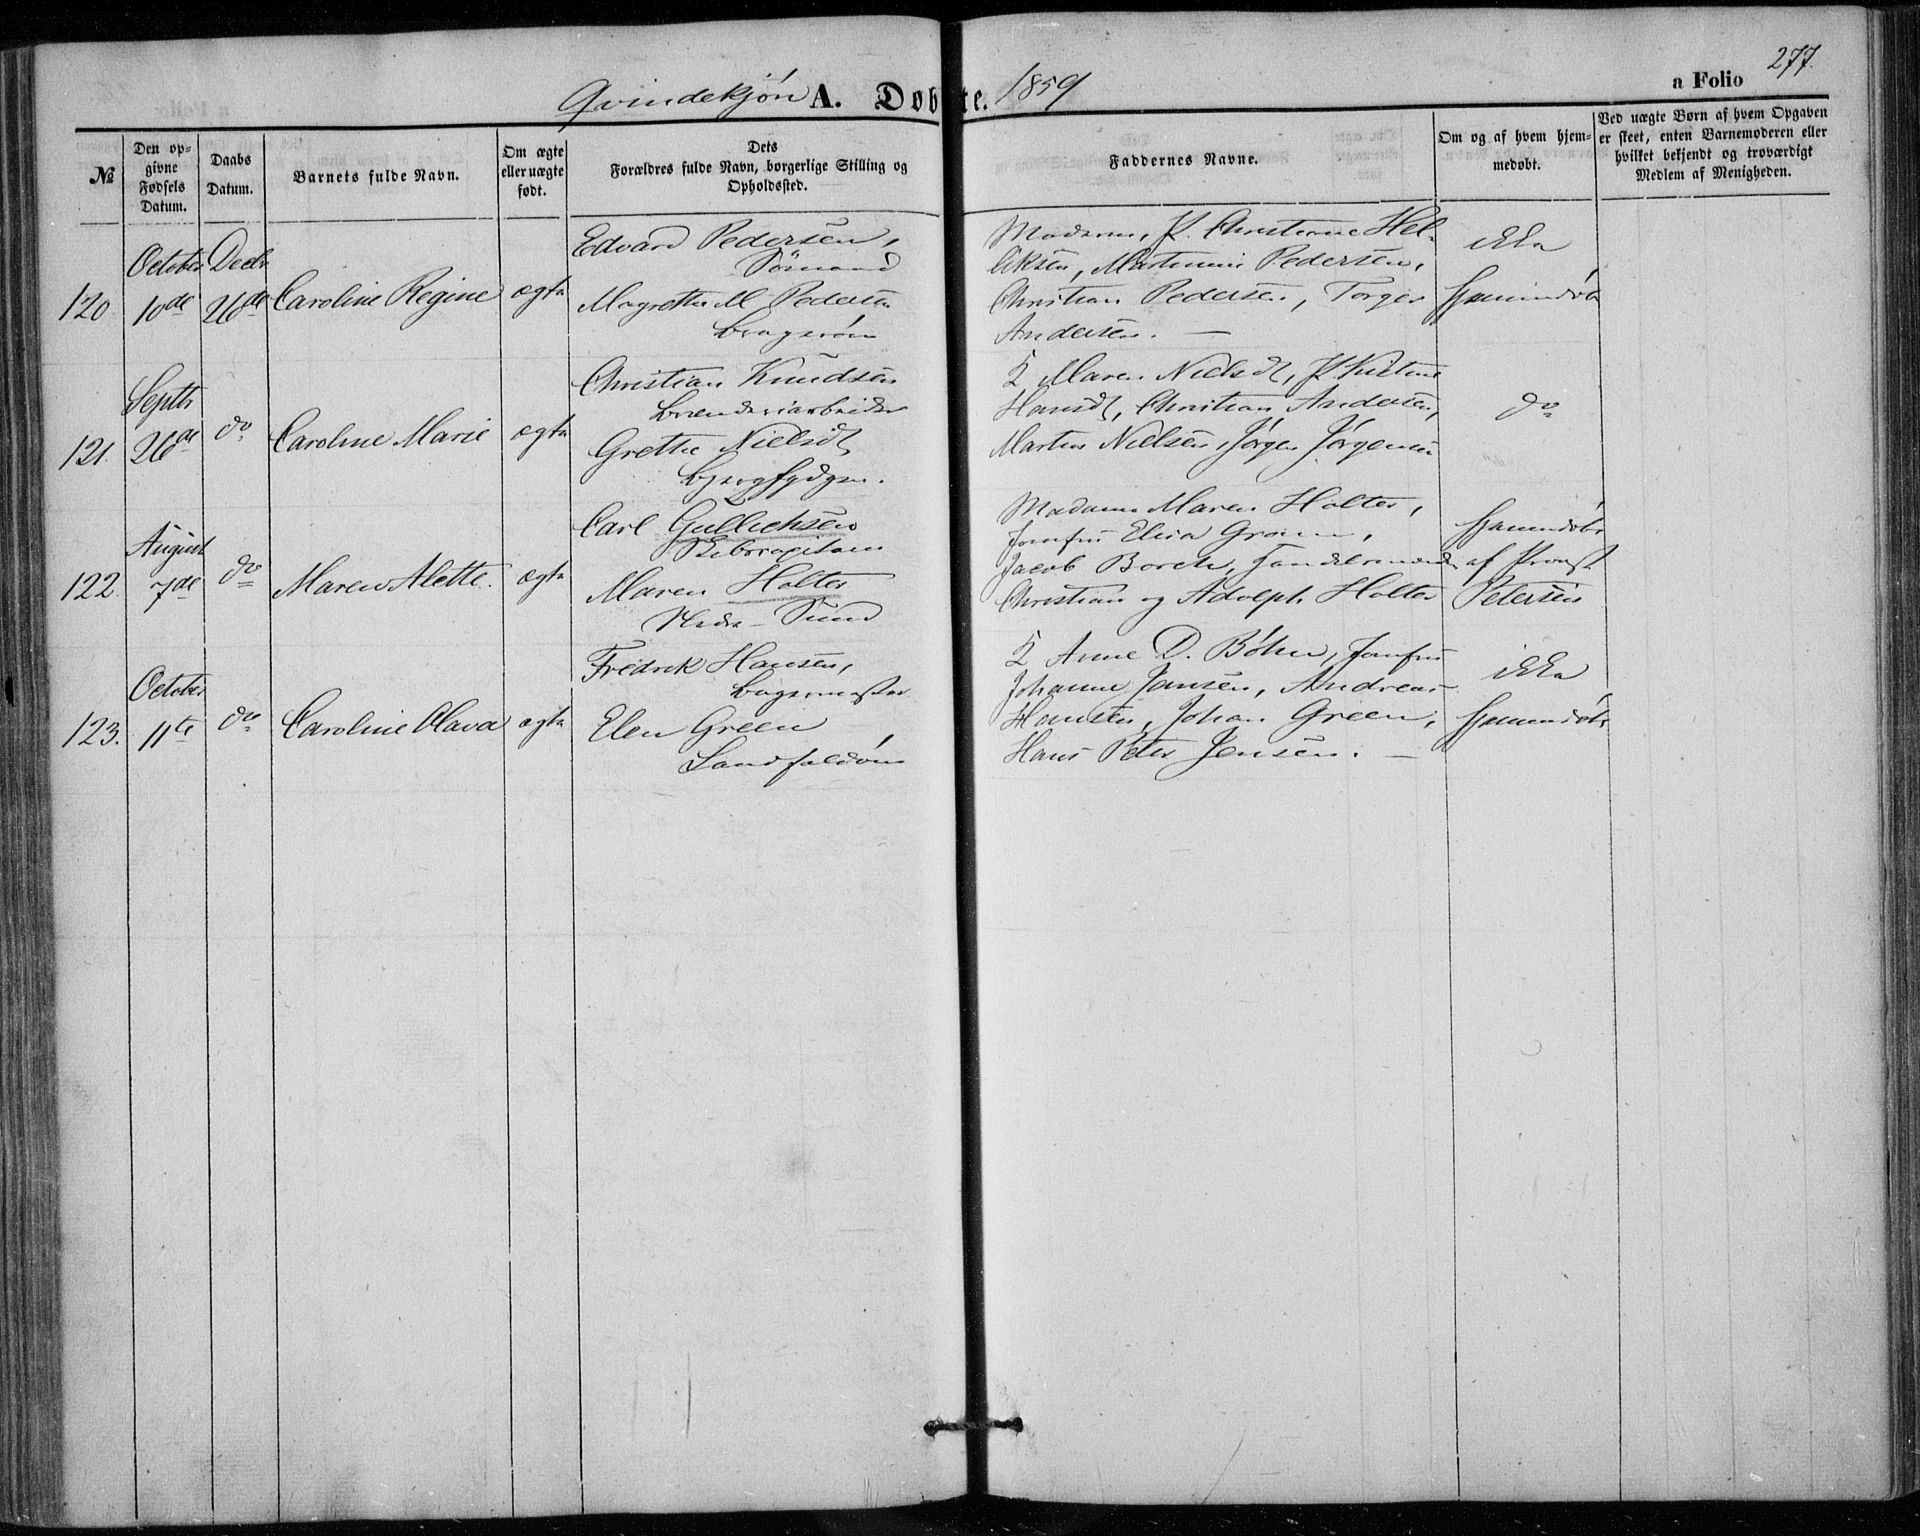 Qvindekjøn A. Døbte. 1859
a Folio 277.
№
Den op-
givne
Fødsels
Datum.
Daabs
Datum.
Barnets fulde Navn.
Om ægte
eller uægte
født.
Dets
Forældres fulde Navn, borgerlige Stilling og
Opholdssted.
Faddernes Navne.
Om og af hvem hjem-
medøbt.
Ved uægte Børn af hvem Opgaven
er skeet, enten Barnemoderen eller
hvilket bekjendt og troværdigt
Medlem af Menigheden.
120.
October
10de
Decbr
26de
Caroline Regine
ægte
Edvard Pedersen,
Sømand
Magrethe M Pedersen
Bragerøen
Madame, P. Christiane Hel-
liksen, Martinius Pedersen,
Christian Pedersen, Torger
Andersen. —
ikke
hjemmedøbt
121.
Septbr
26de
do
Caroline Marie
ægte
Christian Knudsen
Brænderiarbeider
Grethe Nielsdt
Bjergfydgen.
K. Maren Nielsdt, P. Kistine
Hansdt, Christian Andersen,
Martin Nielsen, Jørgen Jørgensen
do
122.
August
7de
do
Maren Alette.
ægte
Carl Gullichsen
Skibscapitain
Maren Holter
Nedre-Sund
Madame Maren Holter,
Jomfru Elisa Gram,
Jacob Borch, Handelsmænd
Christian og Adolph Holter
hjemmedøbt
af Provst
Petersen
123.
October
11te
do
Caroline Olava
ægte
Fredrik Hansen,
Bagermester
Elen Green
Landfaldøen
K. Anne D. Bøhn, Jomfru
Johanne Jansen, Andreas
Hansen, Johan Green,
Hans Peter Jensen. —
ikke
hjemmedøbt